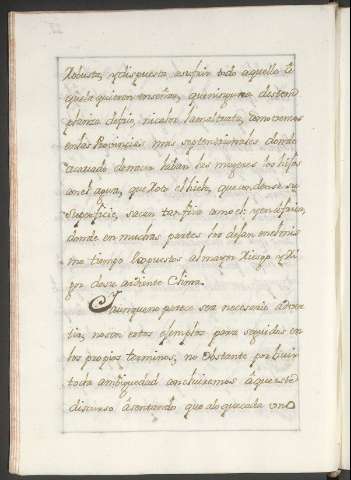 Robusta, y dispuesta a sufrir todo aquello
que la quieran enseñar, que ninguna destem
planza de frio, ni calor la maltrata, como vemos
en las Provincias mas septentrionales, donde
acavado de nacer laban las mugeres los hijos
con el agua, que roto el hielo, que condensó su
superficie, sacan tan fria como el: y en Africa,
donde en muchas partes los dejan en el mis
mo tiempo expuestos al mayor riesgo y ri
gor de su ardiente Clima.
Y aunque no parece ser necesario adver
tir, no son estos exemplos para seguidos en
los propios terminos, no obstante por huir
toda ambiguedad concluiremos aqui este
discurso asentando que a lo que cada uno